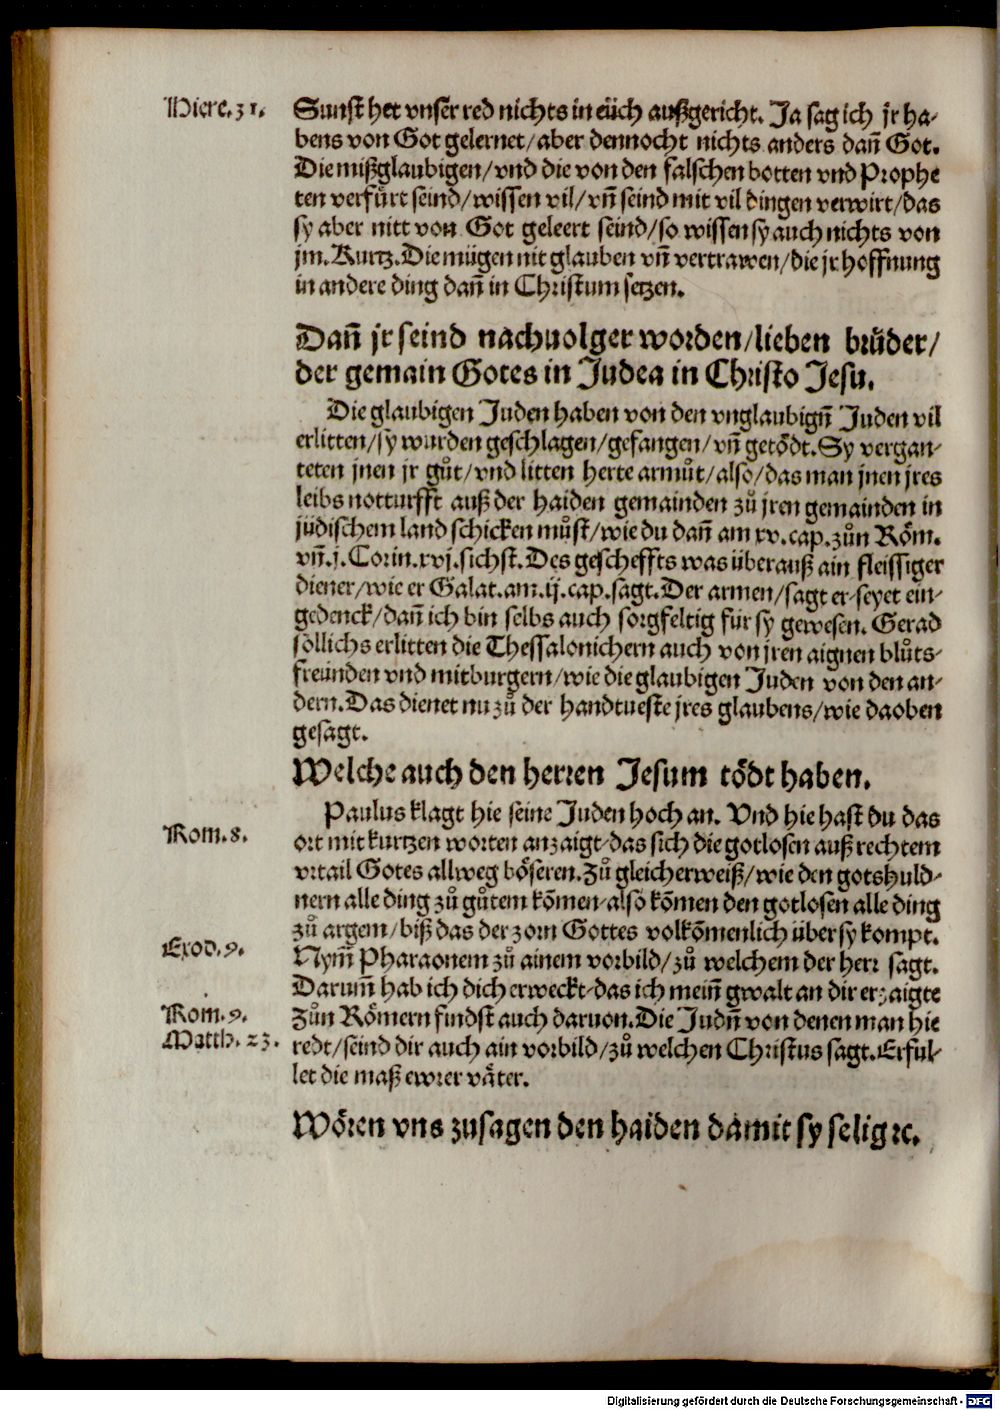 Hiere. 31.
Sunst het vnser red nichts in eüch außgericht. Ja sag ich jr ha-
bens von Got gelernet/ aber dennocht nichts anders dañ Got.
Die mißglaubigen/ vnd die von den falschen botten vnd Prophe
ten verfuͤrt seind/ wissen vil/ vñ seind mit vil dingen verwirt/ das
sy aber nitt von Got geleert seind/ so wissen sy auch nichts von
jm. Kurtz. Die mügen nit glauben vñ vertrawen/ die jr hoffnung
in andere ding dañ in Christum setzen.
Dañ jr seind nachuolger worden/ lieben bruͤder/
der gemain Gotes in Judea in Christo Jesu.
Die glaubigen Juden haben von den vnglaubigñ Juden vil
erlitten/ sy wurden geschlagen/ gefangen/ vñ getoͤdt. Sy vergan-
teten jnen jr guͦt/ vnd litten herte armuͦt/ also/ das man jnen jres
leibs notturfft auß der haiden gemainden zuͦ jren gemainden in
jüdischem land schicken muͦst/ wie du dañ am xv. cap. zuͦn Roͤm.
vñ. j. Corin. xvj. sichst. Des gescheffts was überauß ain fleissiger
diener/ wie er Galat. am. ij. cap. sagt. Der armen/ sagt er/ seyet ein-
gedenck/ dañ ich bin selbs auch sorgfeltig für sy gewesen. Gerad
soͤllichs erlitten die Thessalonichern auch von jren aignen bluͦts-
freünden vnd mitburgern/ wie die glaubigen Juden von den an-
dern. Das dienet nu zuͦ der handtueste jres glaubens/ wie da oben
gesagt.
Welche auch den herren Jesum toͤdt haben.
Paulus klagt hie seine Juden hoch an. Vnd hie hast du das
Rom. 8.
ort mit kurtzen worten anzaigt/ das sich die gotlosen auß rechtem
vrtail Gotes allweg boͤseren. Zuͦ gleicherweiß/ wie den gotshuld-
nern alle ding zuͦ guͦtem koͤmen/ also koͤmen den gotlosen alle ding
zuͦ argem/ biß das der zorn Gottes volkõmenlich über sy kompt.
Exod. 9.
Nym̃ Pharaonem zuͦ ainem vorbild/ zuͦ welchem der herr sagt.
Darum̃ hab ich dich erweckt/ das ich mein̄ gwalt an dir erzaigte
Rom. 9.
Zuͦn Roͤmern findst auch daruon. Die Judñ von denen man hie
Matth. 23.
redt/ seind dir auch ain vorbild/ zuͦ welchen Christus sagt. Erful-
let die maß ewrer vaͤter.
Woͤren vns zusagen den haiden damit sy selig ꝛc.
Digitalisierung gefördert durch die Deutsche Forschungsgemeinschaft - DFG